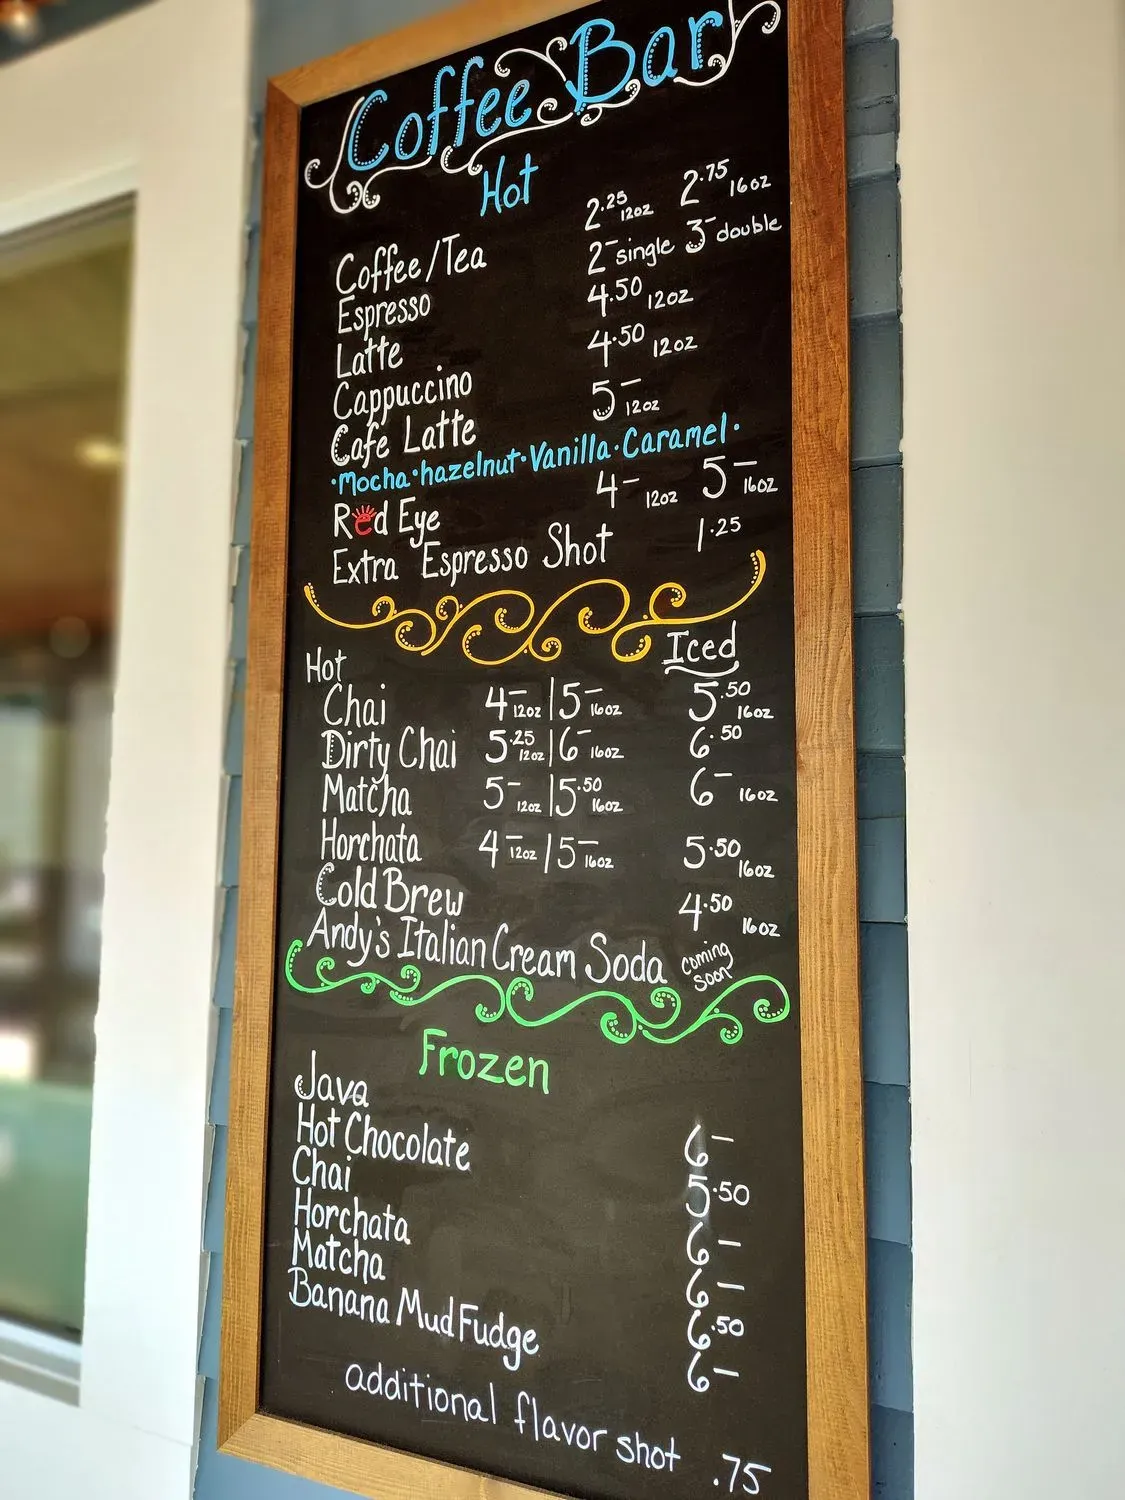 Coffee Bar
Hot
Coffee/Tea 2.25 12oz 2.75 16oz
Espresso 2- single 3- double
Latte 4.50 12oz
Cappuccino 4.50 12oz
Cafe Latte 5- 12oz
·Mocha·hazelnut·Vanilla·Caramel·
Red Eye 4- 12oz 5- 16oz
Extra Espresso Shot 1.25
Hot Iced
Chai 4- 12oz | 5- 16oz 5.50 16oz
Dirty Chai 5.25 12oz | 6- 16oz 6.50
Matcha 5- 12oz | 5.50 16oz 6- 16oz
Horchata 4- 12oz | 5- 16oz 5.50 16oz
Cold Brew 4.50 16oz
Andy's Italian Cream Soda coming soon
Frozen
Java 6-
Hot Chocolate 5.50
Chai 6-
Horchata 6-
Matcha 6.50
Banana Mud Fudge 6-
additional flavor shot .75